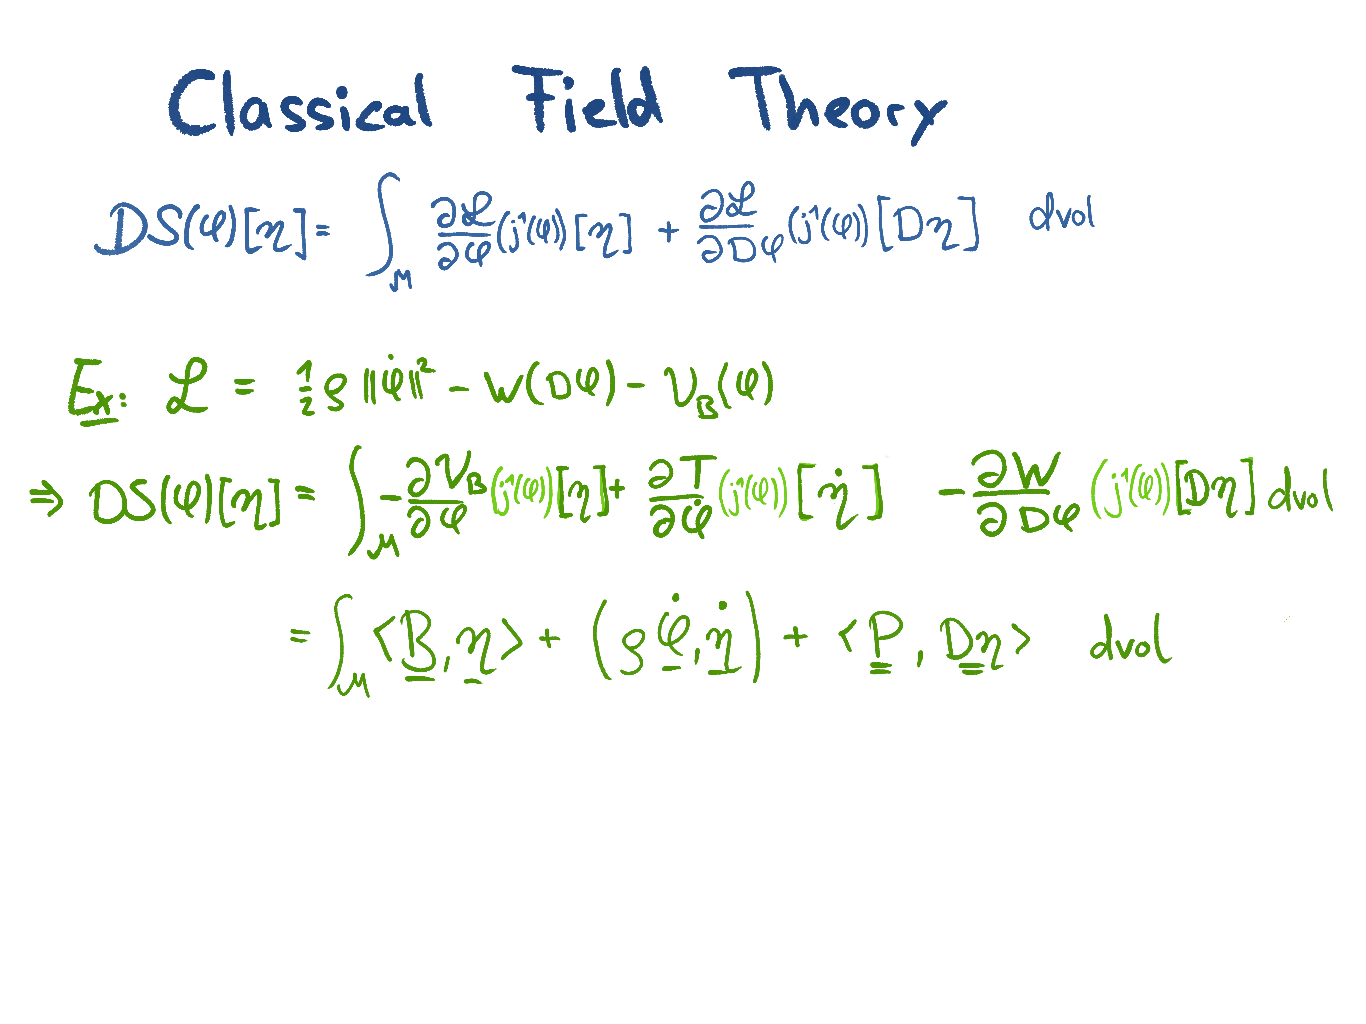 Classical Field Theory
DS(φ)[η] = ∫_M ∂ℒ/∂φ (j¹(φ))[η] + ∂ℒ/∂Dφ (j¹(φ))[Dη] dvol
Ex: ℒ = ½ ρ ‖φ̇‖² - W(Dφ) - V_B(φ)
⇒ DS(φ)[η] = ∫_M -∂V_B/∂φ (j¹(φ))[η] + ∂T/∂φ̇ (j¹(φ))[η̇] - ∂W/∂Dφ (j¹(φ))[Dη] dvol
= ∫_M <B, η> + (ρ φ̇, η̇) + <P, Dη> dvol